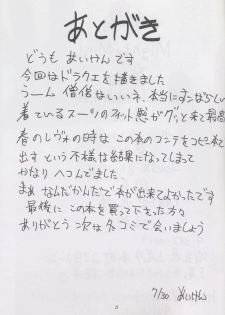 あとがき
どうも あいやんです
今回はドラクエを描きました
うーん 僧侶はいいネ、本当にすばらしい
着ているスーツのフィット感がグッと来て最高
春のレヴォの時は この本のコンテをコピー本で
出すという不様な結果になってしまって
かなりヘコんでました。
まぁ なんだかんだで本が出来てよかったです
最後に この本を買って下さった方々
ありがとう 次は冬コミで会いましょう
7/30